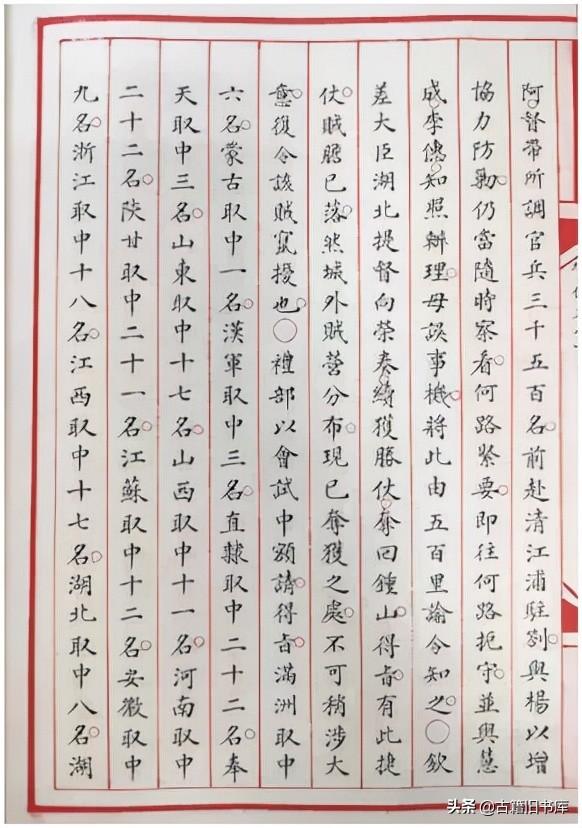 阿督帶所調官兵三千五百名前赴清江浦駐劄與楊以增
協力防勦仍當隨時察看何路緊要即往何路扼守並與慧
成李僡知照辦理毋誤事機將此由五百里諭令知之〇欽
差大臣湖北提督向榮奏續獲勝仗奪回鍾山得旨有此捷
仗賊膽已落然城外賊營分布現已奪獲之處不可稍涉大
意復令該賊竄擾也〇禮部以會試中額請得旨滿洲取中
六名蒙古取中一名漢軍取中三名直隸取中二十二名奉
天取中三名山東取中十七名山西取中十一名河南取中
二十二名陝甘取中二十一名江蘇取中十二名安徽取中
九名浙江取中十八名江西取中十七名湖北取中八名湖
头条 @古籍旧书库